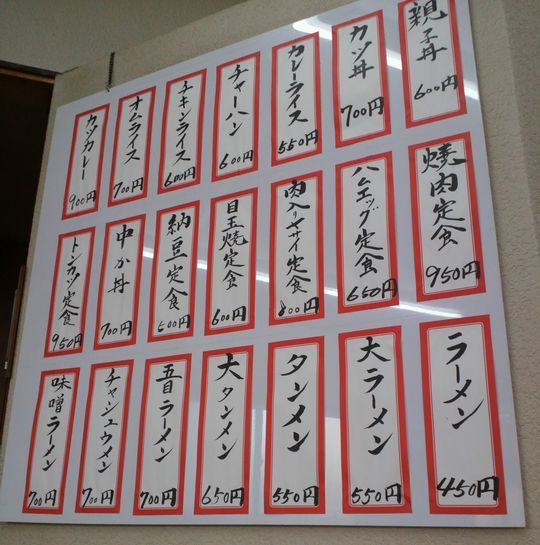 親子丼
600円
カツ丼
700円
カレーライス
550円
チャーハン
600円
チキンライス
600円
オムライス
700円
カツカレー
900円
焼肉定食
950円
ハムエッグ定食
650円
肉入りヤサイ定食
800円
目玉焼定食
600円
納豆定食
500円
中か丼
700円
トンカツ定食
950円
ラーメン
450円
大ラーメン
550円
タンメン
550円
大タンメン
650円
五目ラーメン
700円
チャシュウメン
700円
味噌ラーメン
700円